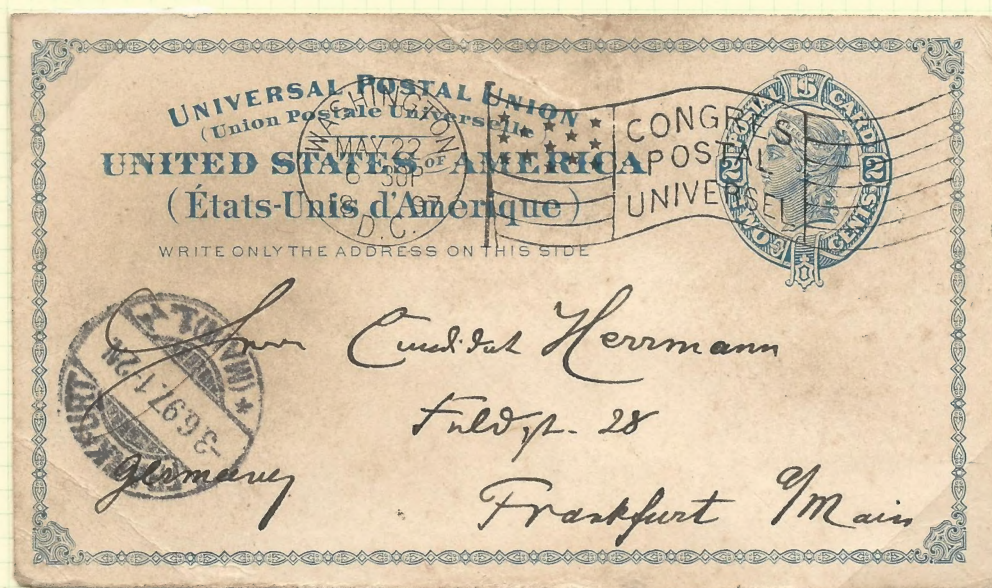 UNIVERSAL POSTAL UNION
(Union Postale Universelle)
UNITED STATES OF AMERICA
(États-Unis d'Amérique)
WRITE ONLY THE ADDRESS ON THIS SIDE
WASHINGTON
MAY 22
6 30P
97
D.C.
CONGRES
POSTAL
UNIVERSEL
POSTAL CARD
TWO CENTS
2 2
FRANKFURT
(MAIN)
-3.6.97. 1-2N.
Herrn Candidat Herrmann
Fuldastr. 28
Germany
Frankfurt a/Main